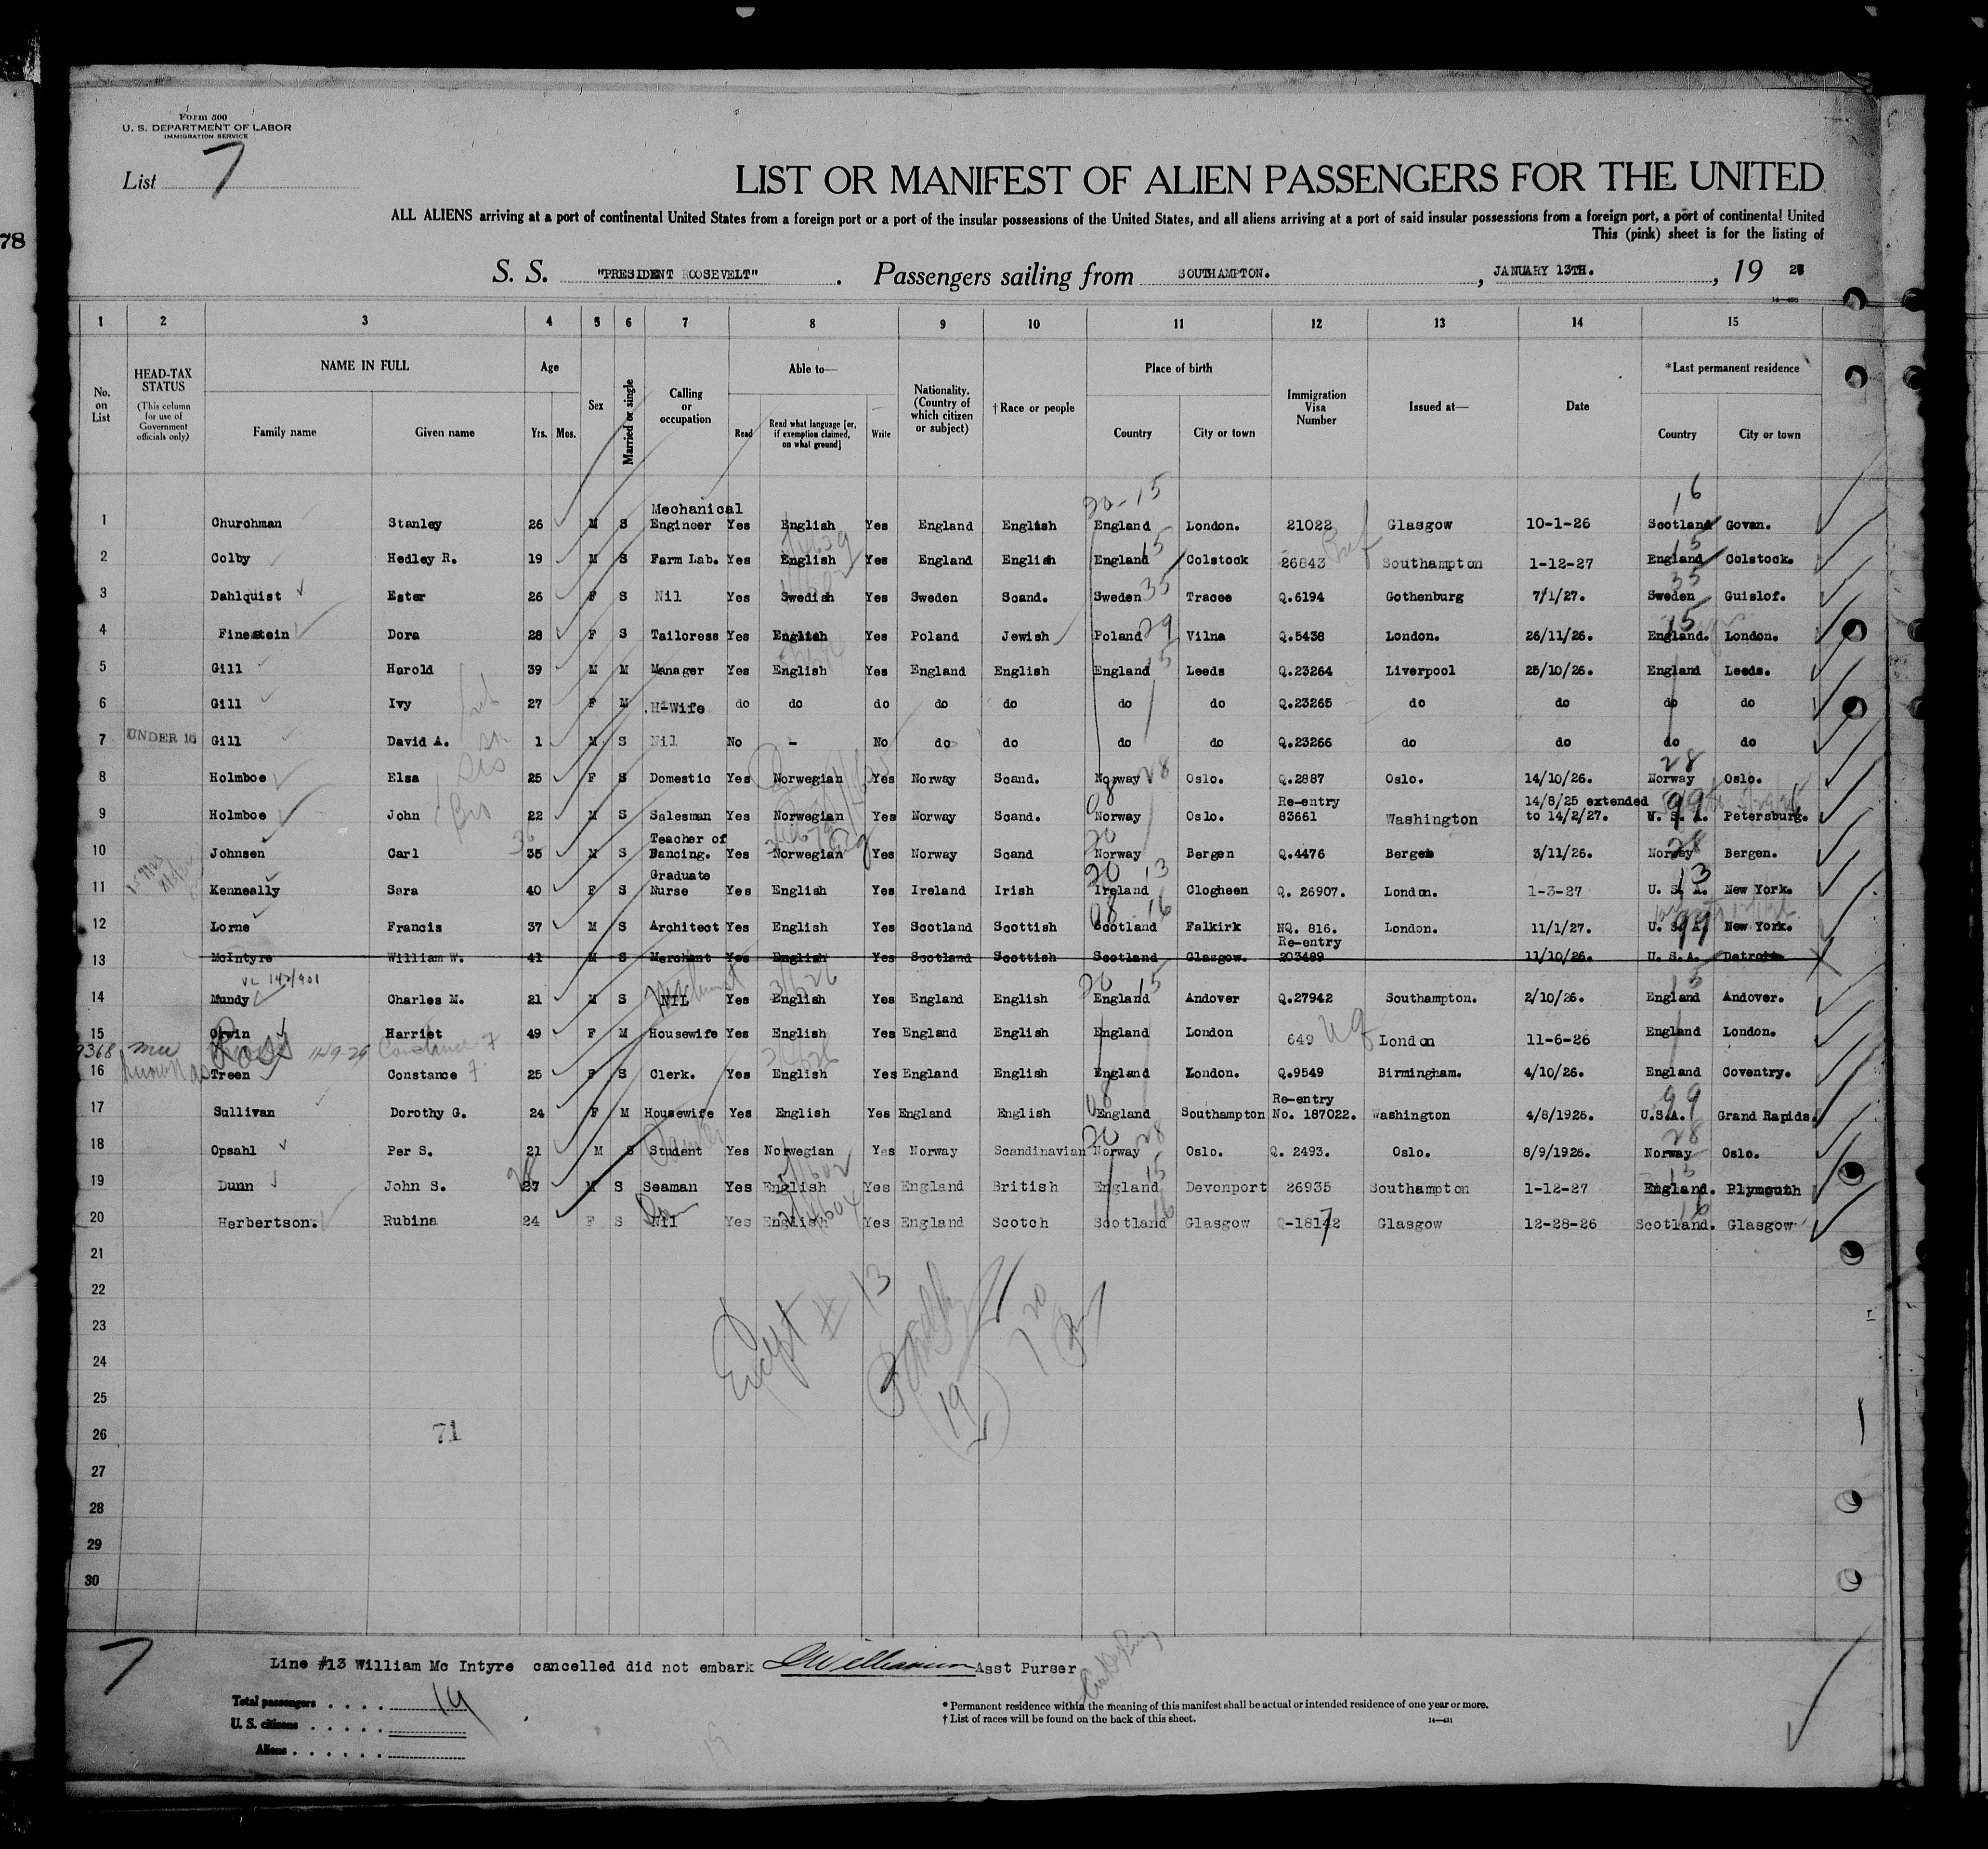 78
Form 500
U. S. DEPARTMENT OF LABOR
IMMIGRATION SERVICE
List 7
LIST OR MANIFEST OF ALIEN PASSENGERS FOR THE UNITED
ALL ALIENS arriving at a port of continental United States from a foreign port or a port of the insular possessions of the United States, and all aliens arriving at a port of said insular possessions from a foreign port, a port of continental United
This (pink) sheet is for the listing of
S. S. "PRESIDENT ROOSEVELT". Passengers sailing from SOUTHAMPTON., JANUARY 13TH., 19 27
1 2 3 4 5 6 7 8 9 10 11 12 13 14 15
No. on List
HEAD-TAX STATUS (This column for use of Government officials only)
NAME IN FULL Family name Given name
Age Yrs. Mos.
Sex
Married or single
Calling or occupation
Able to— Read Read what language [or, if exemption claimed, on what ground] Write
Nationality. (Country of which citizen or subject)
† Race or people
Place of birth Country City or town
Immigration Visa Number
Issued at—
Date
*Last permanent residence Country City or town
20-15 16
1 Churchman Stanley 26 M S Mechanical Engineer Yes English Yes England English England London. 21022 Glasgow 10-1-26 Scotland Govan.
2 Colby Hedley R. 19 M S Farm Lab. Yes English Yes England English England 15 Colstock 26843 Southampton 1-12-27 England 15 Colstock.
3 Dahlquist Ester 26 F S Nil Yes Swedish Yes Sweden Scand. Sweden 35 Tracee Q.6194 Gothenburg 7/1/27. Sweden 35 Guislof.
4 Finestein Dora 28 F S Tailoress Yes English Yes Poland Jewish Poland 29 Vilna Q.5438 London. 26/11/26. England. 15 London.
5 Gill Harold 39 M M Manager Yes English Yes England English England 15 Leeds Q.23264 Liverpool 25/10/26. England Leeds.
6 Gill Ivy 27 F M H-Wife do do do do do do do Q.23265 do do do do
7 UNDER 16 Gill David A. 1 M S Nil No - No do do do do Q.23266 do do do do
8 Holmboe Elsa 25 F S Domestic Yes Norwegian Yes Norway Scand. Norway 28 Oslo. Q.2887 Oslo. 14/10/26. Norway 28 Oslo.
9 Holmboe John 22 M S Salesman Yes Norwegian Yes Norway Scand. Norway Oslo. Re-entry 83661 Washington 14/8/25 extended to 14/2/27. U. S. A. 99 Petersburg.
10 Johnsen Carl 35 M S Teacher of Dancing. Yes Norwegian Yes Norway Scand Norway 20 Bergen Q.4476 Bergen 3/11/26. Norway 28 Bergen.
11 Kenneally Sara 40 F S Graduate Nurse Yes English Yes Ireland Irish Ireland 20 13 Clogheen Q. 26907. London. 1-3-27 U. S. A. 13 New York.
12 Lorne Francis 37 M S Architect Yes English Yes Scotland Scottish Scotland 08 16 Falkirk NQ. 816. London. 11/1/27. U. S. A. 99 New York.
13 McIntyre William W. 41 M S Merchant Yes English Yes Scotland Scottish Scotland Glasgow. Re-entry 203489 11/10/26. U. S. A. Detroit
14 Mundy Charles M. 21 M S NIL Yes English Yes England English England 20 15 Andover Q.27942 Southampton. 2/10/26. England 15 Andover.
15 Orwin Harriet 49 F M Housewife Yes English Yes England English England London 649 London 11-6-26 England London.
Ross Constance
known as
16 Treen Constance 25 F S Clerk. Yes English Yes England English England London. Q.9549 Birmingham. 4/10/26. England Coventry.
17 Sullivan Dorothy G. 24 F M Housewife Yes English Yes England English England 08 Southampton Re-entry No. 187022. Washington 4/8/1926. U.S.A. 99 Grand Rapids.
18 Opsahl Per S. 21 M S Student Yes Norwegian Yes Norway Scandinavian Norway 20 28 Oslo. Q. 2493. Oslo. 8/9/1926. Norway 28 Oslo.
19 Dunn John S. 27 M S Seaman Yes English Yes England British England 15 Devonport 26935 Southampton 1-12-27 England. 15 Plymouth
20 Herbertson. Rubina 24 F S Nil Yes English Yes England Scotch Scotland 16 Glasgow Q-18172 Glasgow 12-28-26 Scotland. 16 Glasgow
21
22
23
24
25
26
27
28
29
30
Except # 13
19
71
7
Line #13 William Mc Intyre cancelled did not embark Asst Purser
Total passengers . . . . 19
U. S. citizens . . . . .
Aliens . . . . . .
* Permanent residence within the meaning of this manifest shall be actual or intended residence of one year or more.
† List of races will be found on the back of this sheet.
14—431